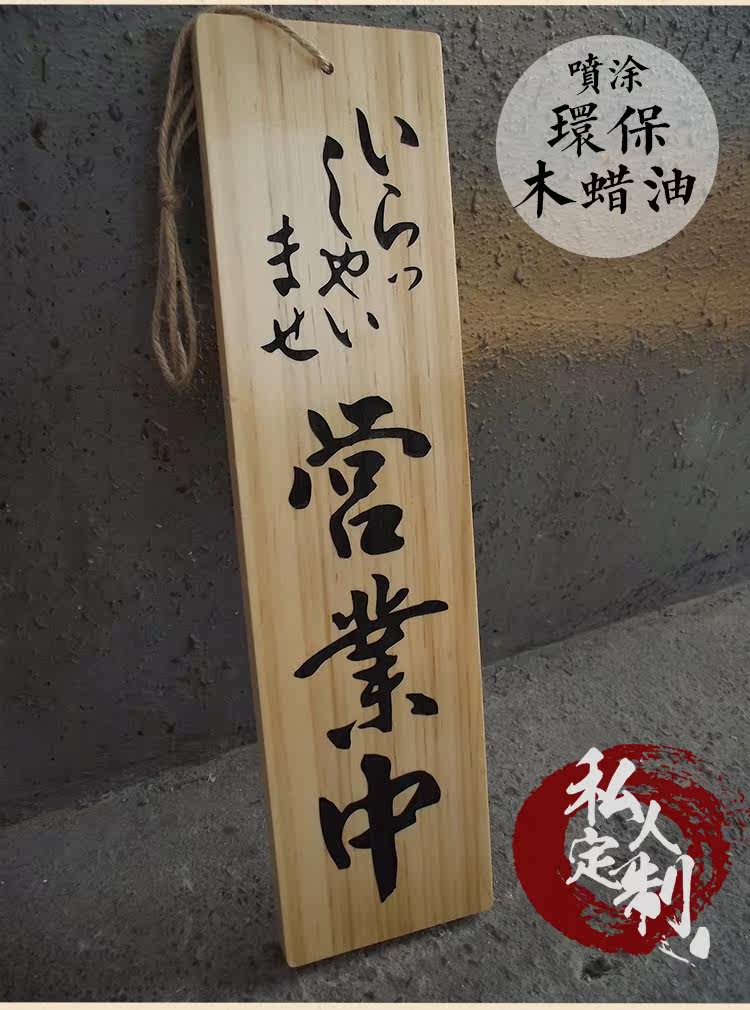 いらっ
しゃい
ませ
営業中
噴涂
環保
木蜡油
私人
定制